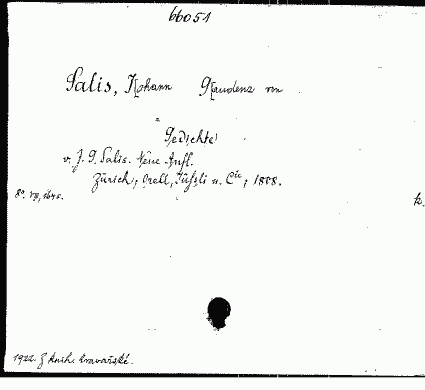 66051
Salis, Johann Gaudenz von
Gedichte
v. J. G. Salis. Neue Aufl.
Zürich, Orell, Füssli u. Cie, 1808.
8°. VIII, 164 s.
k.
1922. Z knih. kravařské.